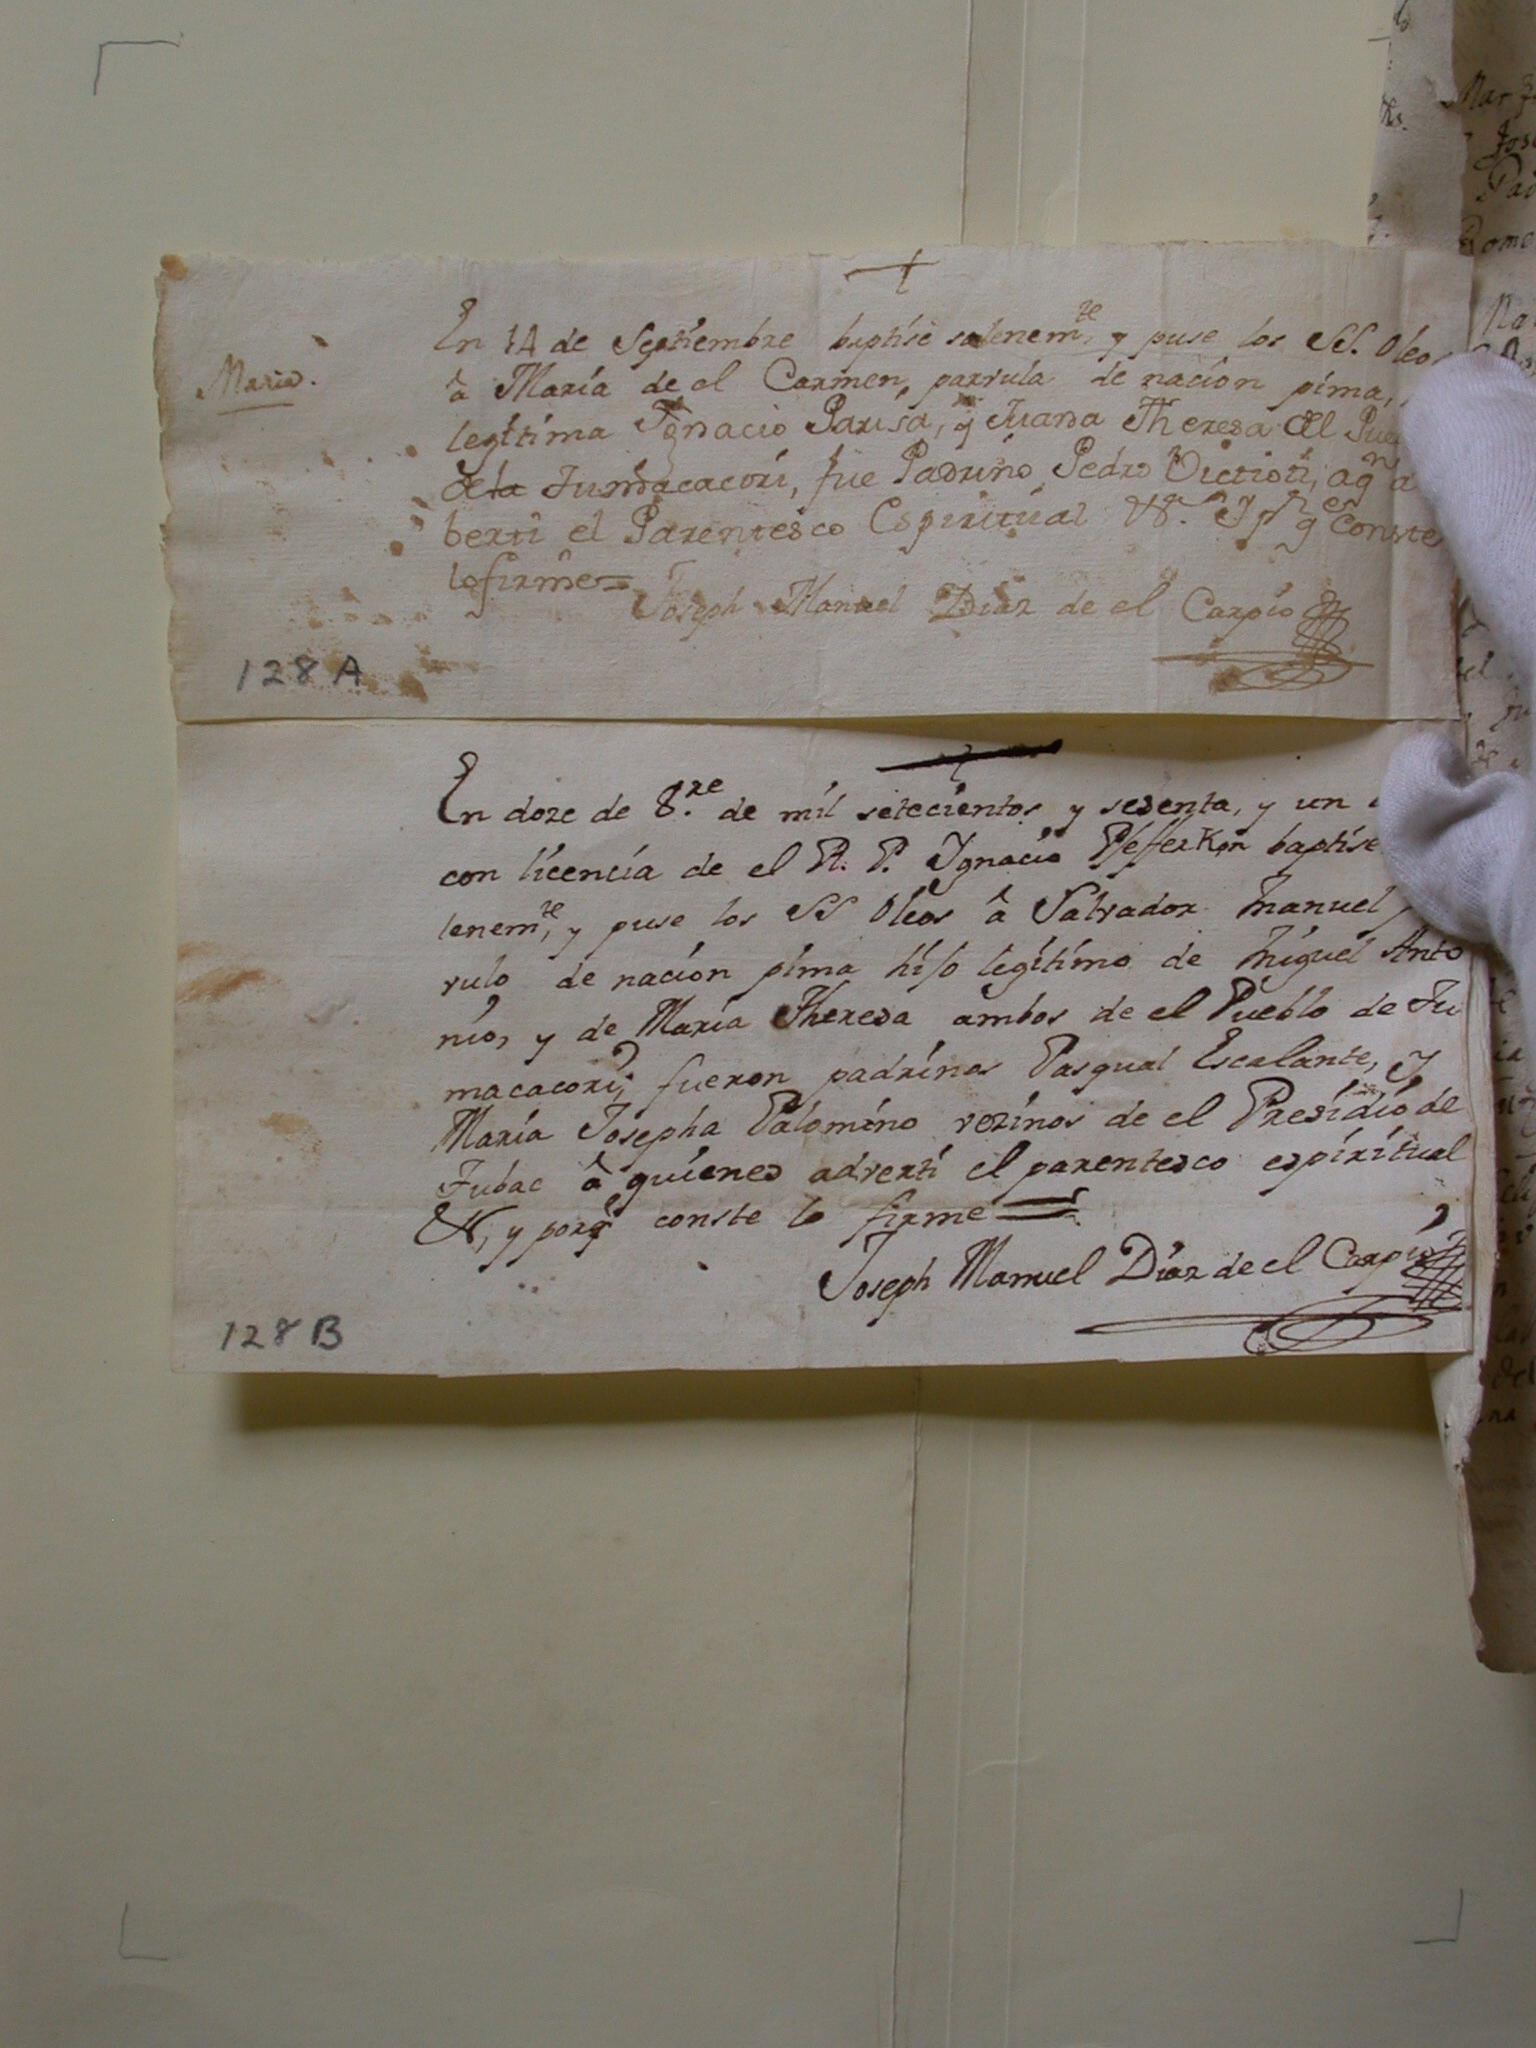 En 14 de Septiembre baptisè solenem.te y puse los SS. Oleos
Maria.
â María de el Carmen, parvula de nacion pima,
legitima Ignacio Parisa, y Juana Theresa del Pue
de la Tumacacori, fue Padrino Pedro aqn a
berti el Parentesco Espiritual &. Y pr qe Conste
lo firmè=
Joseph Manuel Diaz de el Carpio
128 A
En doze de 8.re de mil setecientos y sesenta, y un
con licencia de el R. P. Ignacio Pfefferkon baptise
lenem.te, y puse los SS Oleos â Salvador Manuel
vulo de nacion pima hijo legitimo de Miguel Anto
nio, y de Maria Theresa ambos de el Pueblo de Tu
macacori; fueron padrinos Pasqual Escalante, y
Maria Josepha Palomino vezinos de el Presidio de
Tubac â quienes adverti el parentesco espiritual
&, y porq conste lo firme =
Joseph Manuel Diaz de el Carpio
128 B